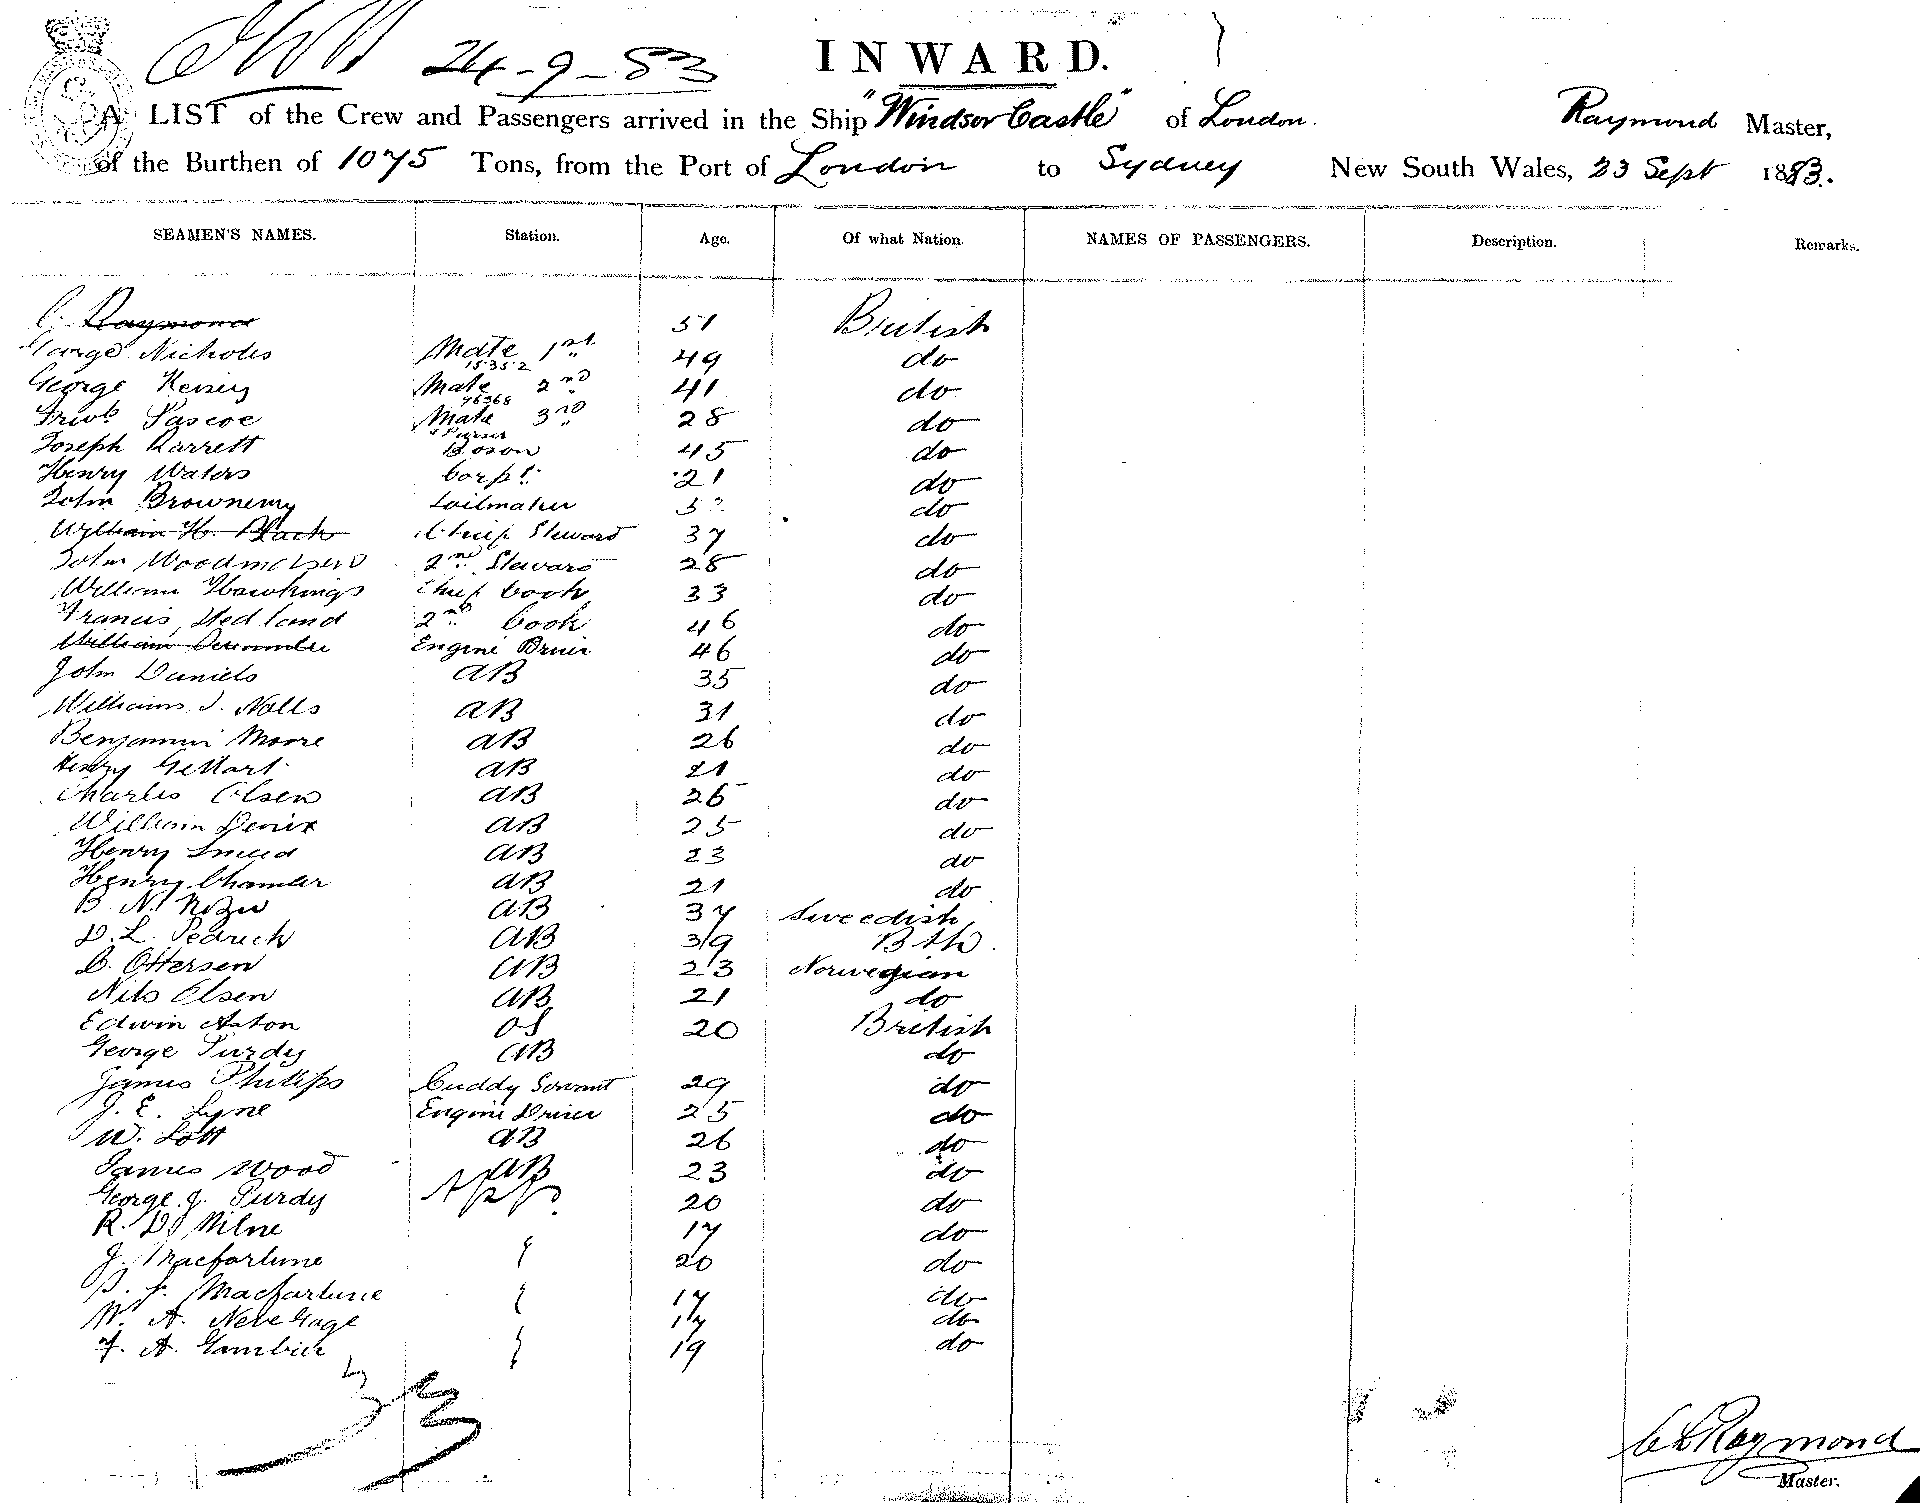 24-9-83
INWARD.
A LIST of the Crew and Passengers arrived in the Ship "Windsor Castle" of London. Raymond Master,
of the Burthen of 1075 Tons, from the Port of London to Sydney New South Wales, 23 Sept 1883.
SEAMEN'S NAMES. Station. Age. Of what Nation. NAMES OF PASSENGERS. Description. Remarks.
C. Raymond 51 British
George Nicholls Mate 1st 49 do
15352
George Mate 2nd 41 do
76368
Pascoe Mate 3rd 28 do
& Purser
Joseph Barrett Boson 45 do
Henry Waters Corpl. 21 do
John Sailmaker do
William H. Black Chief Steward 37 do
John 2nd Steward 28 do
William Hawkings Chief Cook 33 do
Francis Hedland 2nd Cook 46 do
William Engine Driver 46 do
John Daniels AB 35 do
William J. Nolls AB 31 do
Benjamin Moore AB 26 do
Henry AB 21 do
Charles Olsen AB 26 do
William AB 25 do
Henry Smeed AB 23 do
Henry AB 21 do
B. N. AB 37 Sweedish
D. L. Pedrick AB 39 Btsh.
Ottersen AB 23 Norwegian
Nils Olsen AB 21 do
Edwin Aston OS 20 British
George Purdy AB do
James Philips Cuddy Servant 29 do
J. E. Lyne Engine Driver 25 do
W. Lott AB 26 do
James Wood AB 23 do
George J. Purdy App. 20 do
R. D. Milne 17 do
J. Macfarlane 20 do
Macfarlane 17 do
W. A. 17 do
F. A. Gambier 19 do
33
C L Raymond
Master.